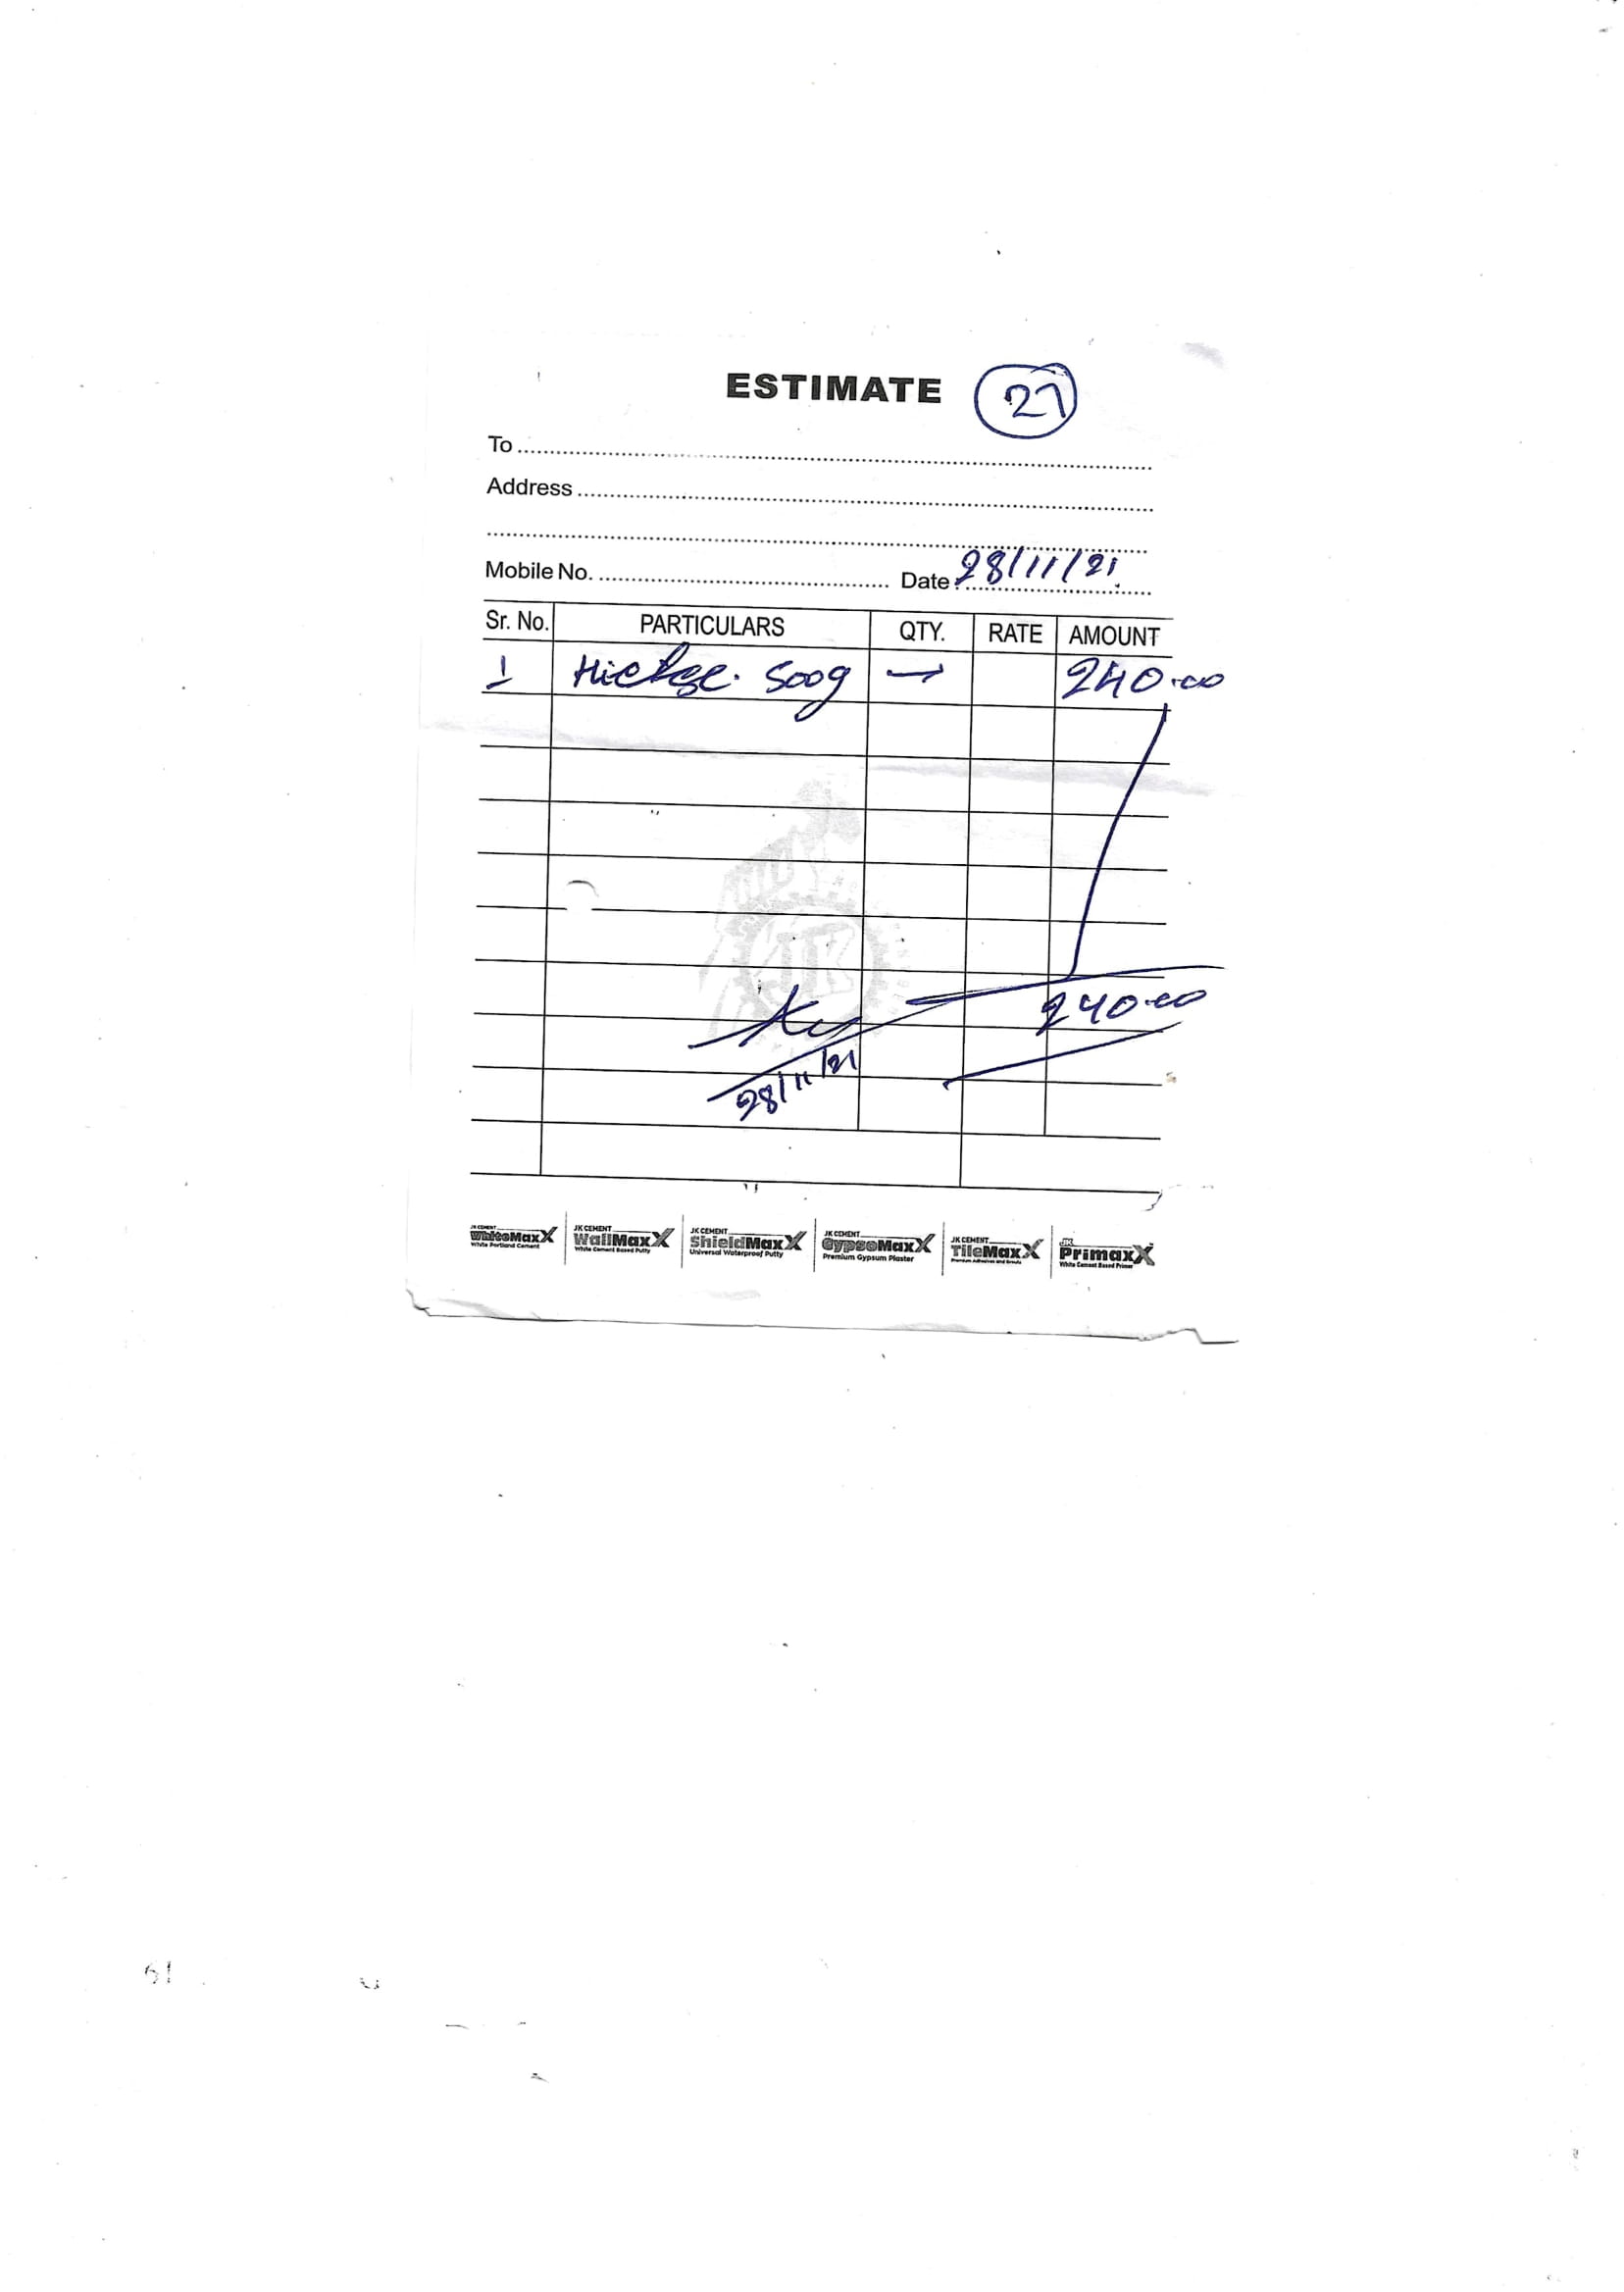 ESTIMATE 27
To
Address
Mobile No. Date 28/11/21
Sr. No. PARTICULARS QTY. RATE AMOUNT
1 500g — 240.00
240.00
28/11/21
JK CEMENT WhiteMaxX White Portland Cement
JK CEMENT WallMaxX White Cement Based Putty
JK CEMENT ShieldMaxX Universal Waterproof Putty
JK CEMENT GypsoMaxX Premium Gypsum Plaster
JK CEMENT TileMaxX Premium Adhesives and Grouts
JK PrimaxX White Cement Based Primer